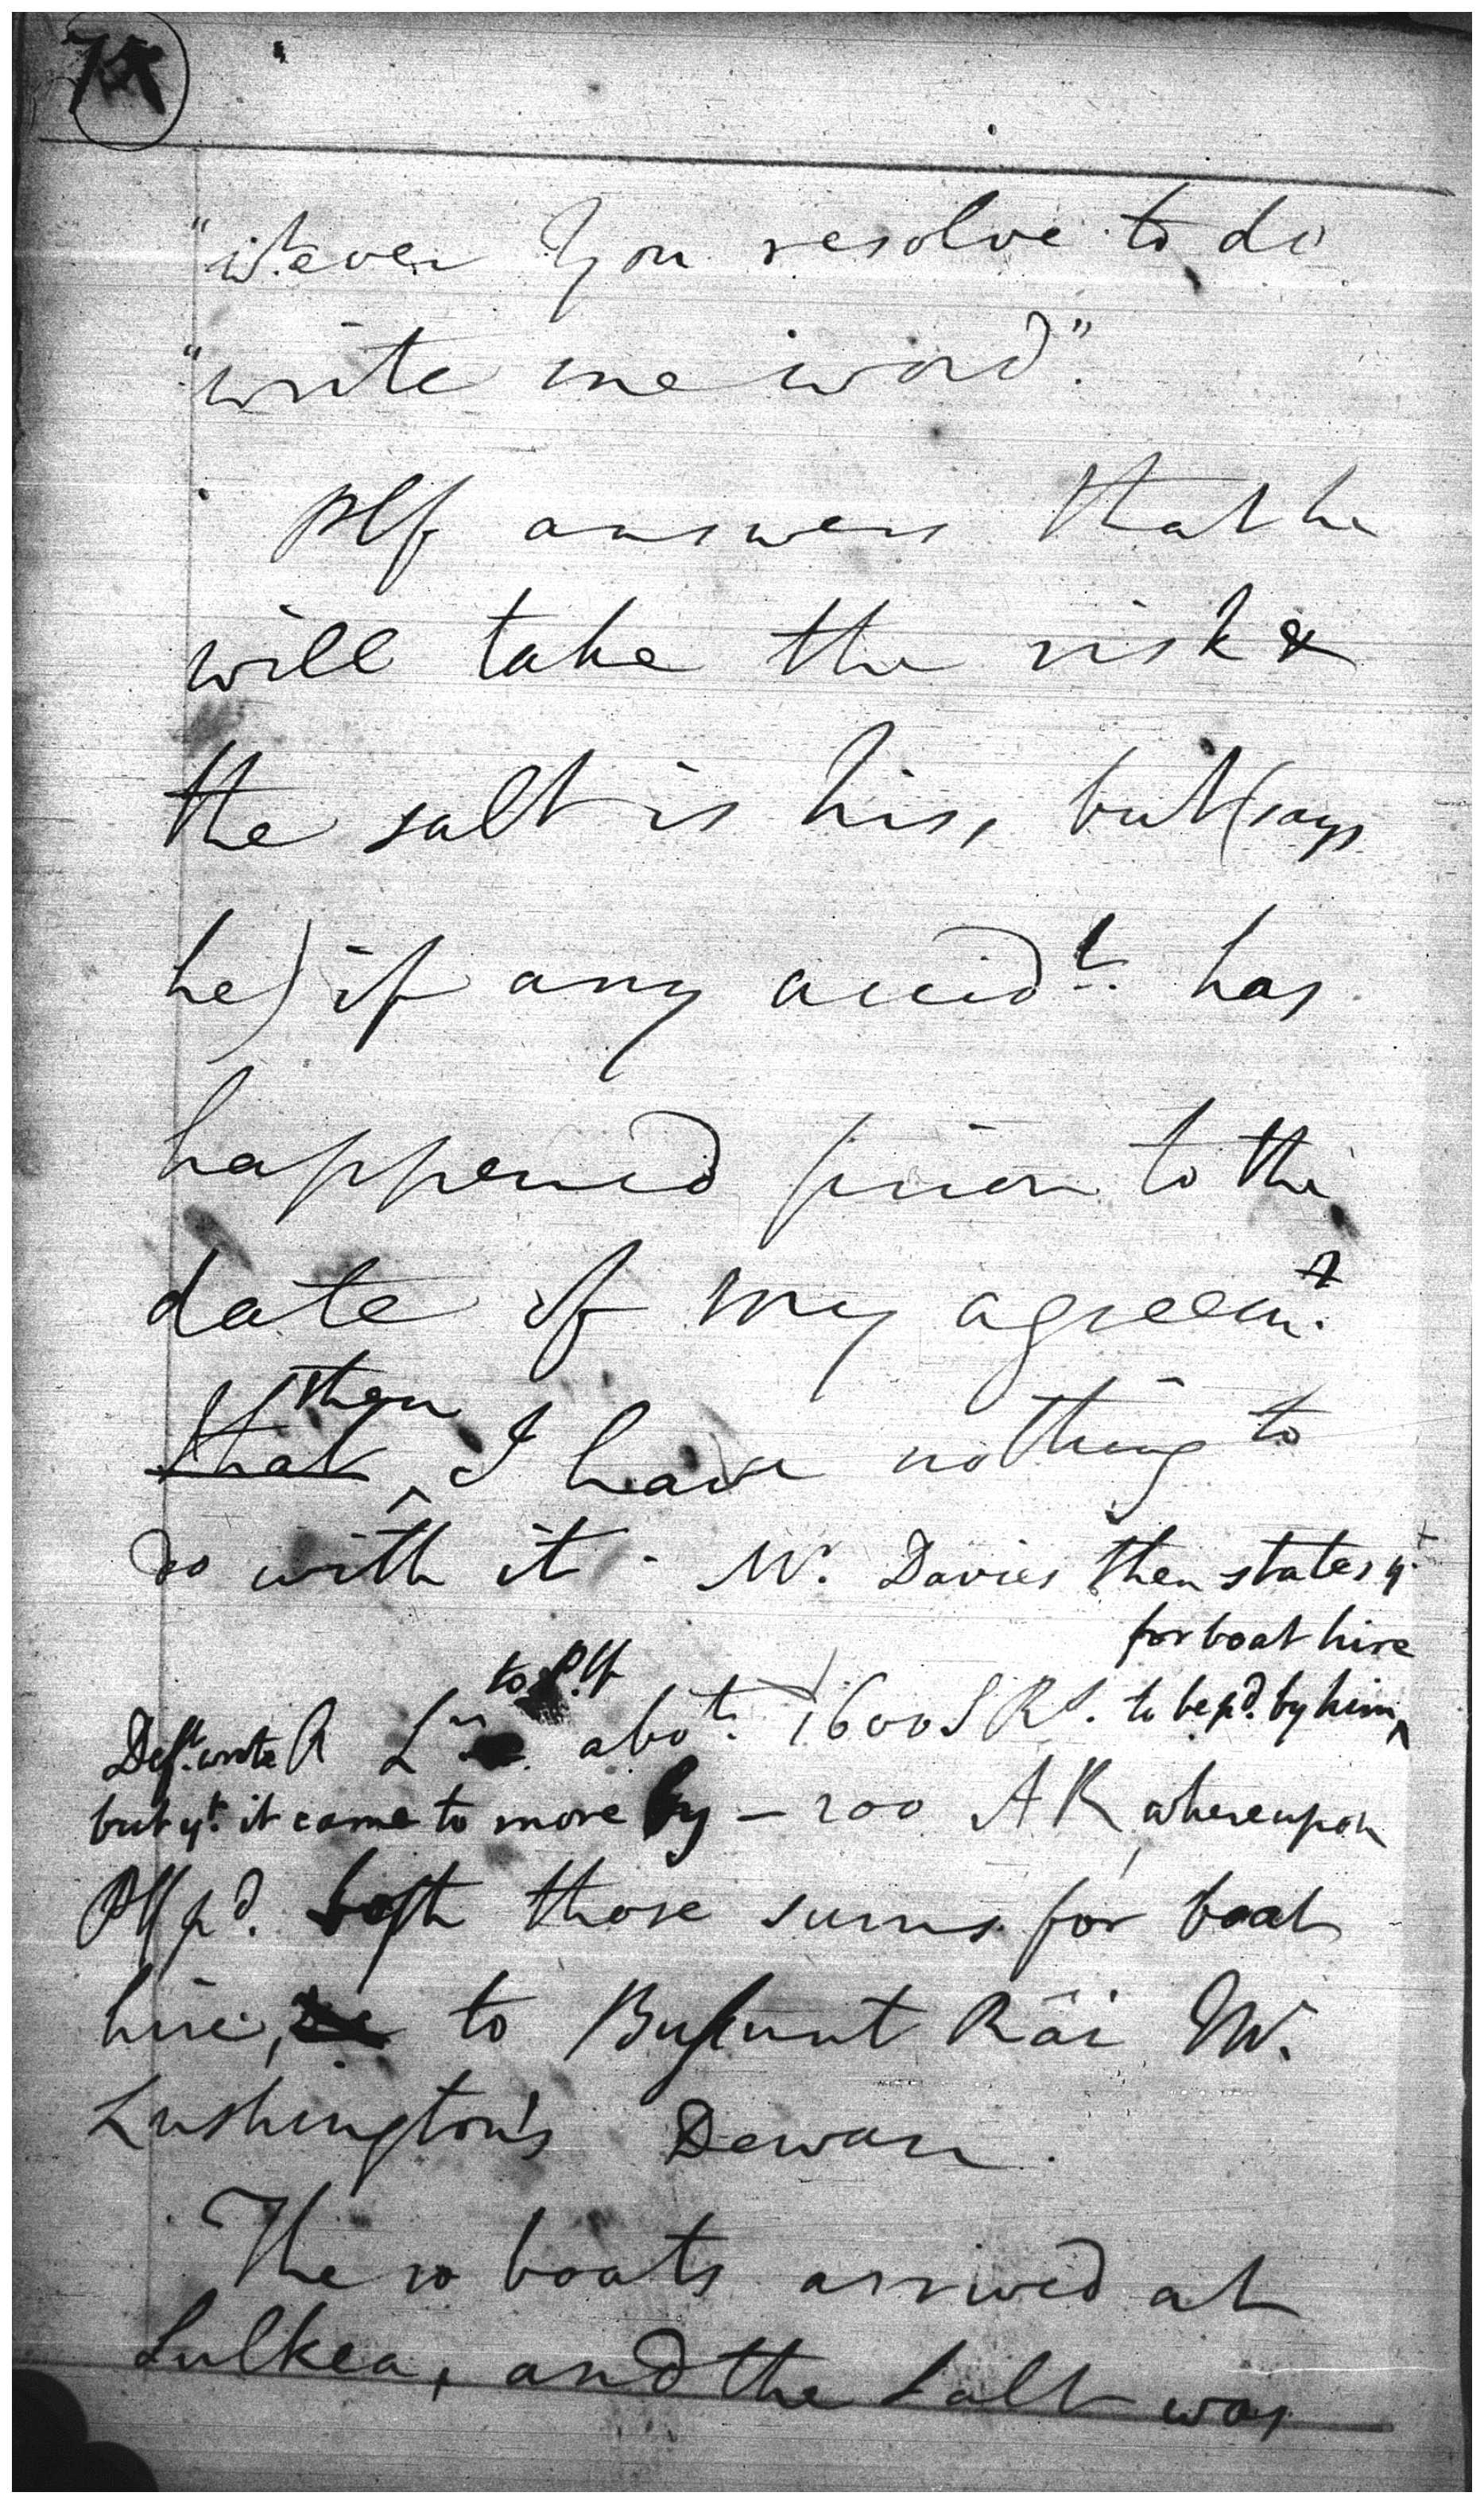 "wtever You resolve to do
"write me word".
Plf answers that he
will take the risk &
the salt is his, but (says
he) if any accidt. has
happened prior to the
date of my agreemt.
then
that ^ I have nothing to
do with it. Mr. Davies then states yt.
for boat hire
to Plf
Deft. wrote A Lr. abot. 1600 S Rs. to be pd. by him ^
but yt. it came to more by — 200 A R, whereupon
Plf pd. both those sums for boat
hire, to Bussunt Râi Mr.
Lushington's Dewan.
The 10 boats arrived at
Lulkea, and the Salt was